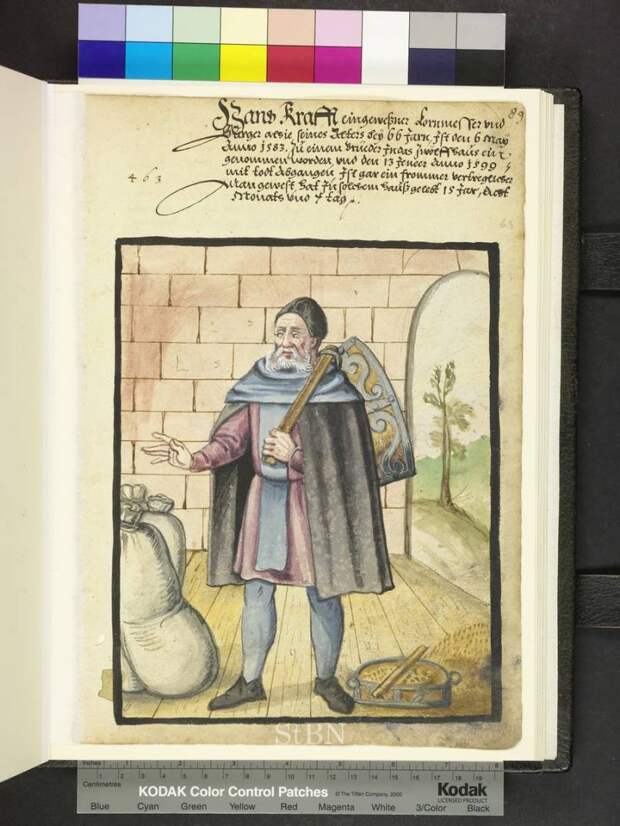 Hans Krafft eingeweßner Kornmesser vnd
89
Burger seines Alters bey 66 Jarn, Ist den 6 May
Anno 1583. Zu einem bruder In das Zwelffhaus ein
genommen worden, vnd den 13 Jenner Anno 1599
463
mit todt Abgangen Ist gar ein frommer vertreglicher
Man gewest, hat In solchem hauß gelebt 15 Jar, Acht
63
Monats vnd 7 tag.
L S
StBN
Inches 1 2 3 4 5 6 7 8
Centimetres 1 2 3 4 5 6 7 8 9 10 11 12 13 14 15 16 17 18 19
KODAK Color Control Patches © The Tiffen Company, 2000 Kodak
LICENSED PRODUCT
Blue Cyan Green Yellow Red Magenta White 3/Color Black